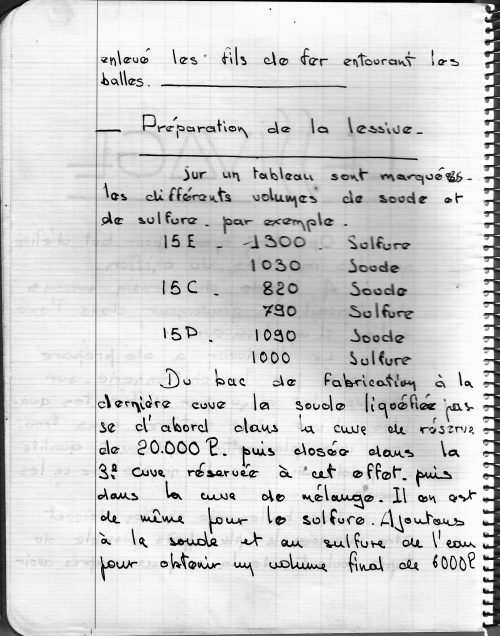 enlevé les fils de fer entourant les
balles.
— Préparation de la lessive -
Sur un tableau sont marqués
les différents volumes de soude et
de sulfure. par exemple.
15 E - 1300 Sulfure
1030 Soude
15 C. 820 Soude
790 Sulfure
15 D. 1090 Soude
1000 Sulfure
Du bac de fabrication à la
dernière cuve la soude liquéfiée pas
se d'abord dans la cuve de réserve
de 20.000 l. puis dosée dans la
3e cuve réservée à cet effet. puis
dans la cuve de mélange. Il en est
de même pour le sulfure. Ajoutons
à la soude et au sulfure de l'eau
pour obtenir un volume final de 6000 l